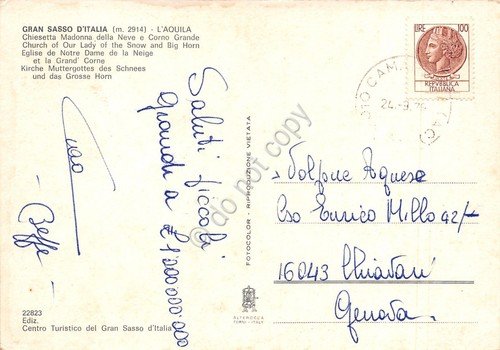 GRAN SASSO D'ITALIA (m. 2914) - L'AQUILA
Chiesetta Madonna della Neve e Corno Grande
Church of Our Lady of the Snow and Big Horn
Eglise de Notre Dame de la Neige
et la Grand' Corne
Kirche Muttergottes des Schnees
und das Grosse Horn
LIRE 100
REPVBBLICA
ITALIANA
Saluti piccoli
Grandi a £1000000.000
Beffe
FOTOCOLOR - RIPRODUZIONE VIETATA
do not copy
Volpone Agnese
Cso Enrico Millo 42/
16043 Chiavari
Genova
22823
Ediz.
Centro Turistico del Gran Sasso d'Italia
ALTEROCCA
TERNI - ITALY